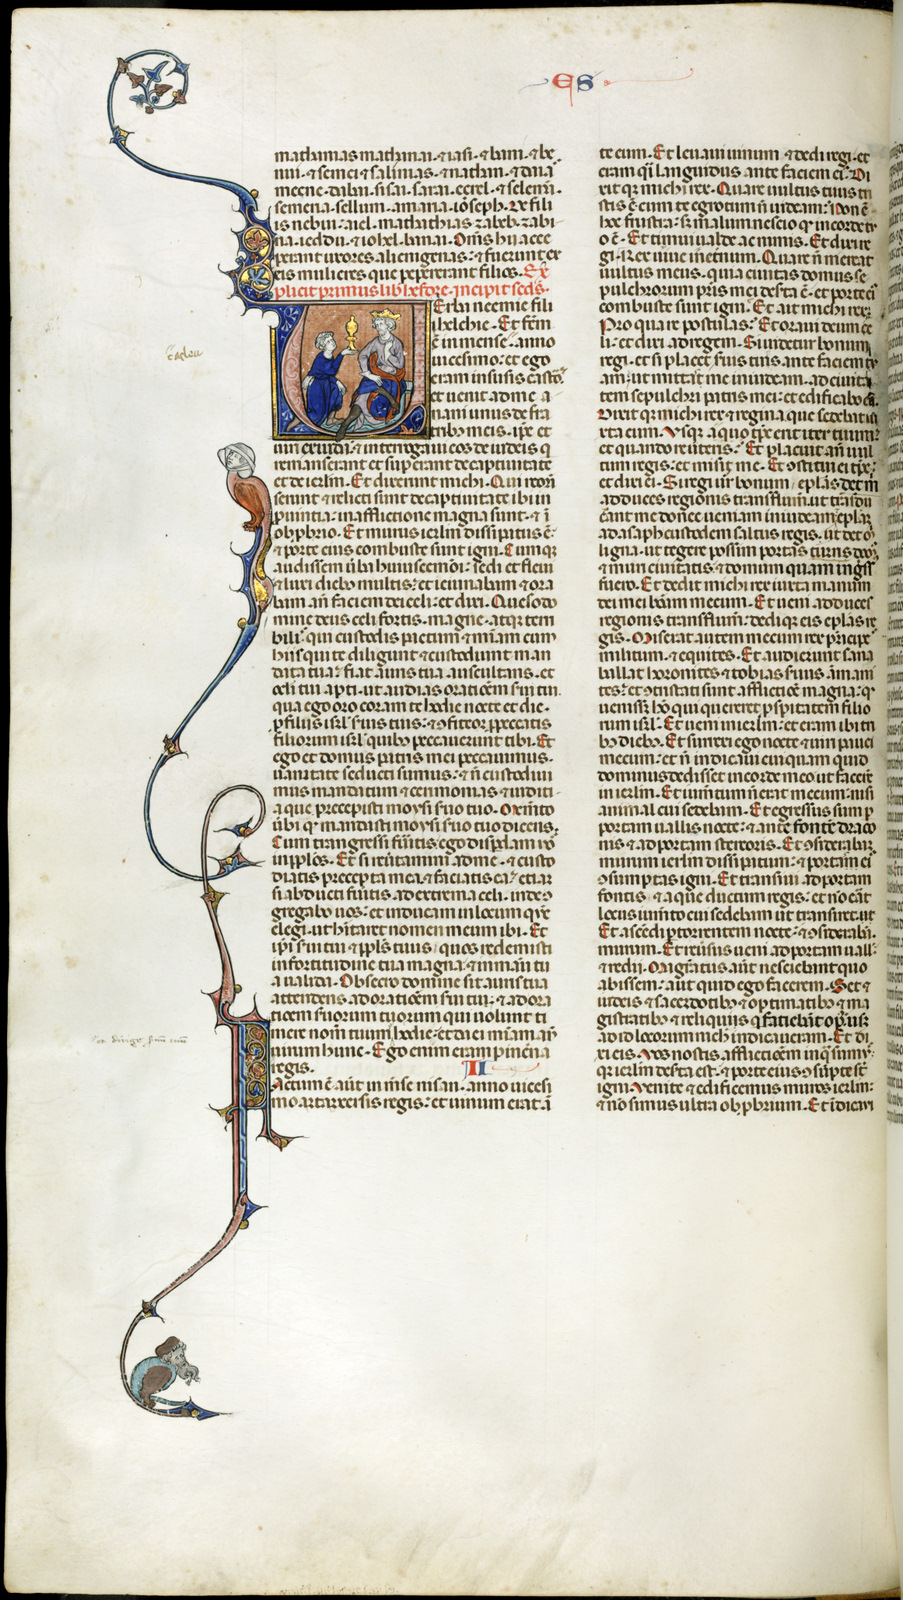 ES
mathanias mathanai. & iasi. & bani. & be
nnui. & semei & salmias. & nathan. & dina
meene dabu. sisai. sarai. ecrel. & selemi.
semeria. sellum. amaria. ioseph. Ex fili
is nebui. aiel. mathathias zabeb. zabi
na. ieddu. & iohel. banai. Om̄s hii acce
perant uxores alienigenas. & fuerunt ex
eis mulieres que pepererant filios. Ex
plicit primus lib̄ esdre. incipit sed̄s.
Erba neemie filii
helchie. Et fc̄m
ē in mense. anno
uicesimo: et ego
eram in susis castro.
et uenit ad me a
nani unus de fra
tribꝰ meis. ipse et
uiri ex iuda: & interrogaui eos de iudeis q
remanserant et supererant de captiuitate
et de ierlm̄. Et dixerunt michi. Qui reman
serunt & relicti sunt de captiuitate ibi in
prouintia: in afflictione magna sunt. & ī
obprobrio. Et murus ierlm̄ dissipatus ē.
& porte eius combuste sunt igni. Cumque
audissem uerba huiuscemōi: sedi et fleui
& luxi diebꝰ multis: et ieiunabam & ora
bam an̄ faciem dei celi: et dixi. Queso do
mine deus celi fortis. magne. atque tem
bilis qui custodis pactum & mīam cum
hiis qui te diligunt & custodiunt man
data tua: fiat auris tua auscultans. et
oculi tui apti. ut audias oratioēm serui tui.
qua ego oro coram te hodie nocte et die.
pro filiis isrl̄ seruis tuis: & confiteor pro peccatis
filiorum isrl̄ quibꝰ peccauerunt tibi. Et
ego et domus patris mei peccauimus.
uanitate seducti sumus: & n̄ custodiui
mus mandatum & cerimonias & iuditi
a que precepisti moysi seruo tuo. Memento
uerbi qd̄ mandasti moysi seruo tuo dicens.
Cum transgressi fueritis: ego dispergam uos
in pplos. Et si reuertamini ad me. & custo
diatis precepta mea. & faciatis ea: etiam
si abducti fueritis ad extrema celi. inde
gregabo uos: et inducam in locum quem
elegi. ut habitaret nomen meum ibi. Et
ipsi serui tui & ppls tuus: quos redemisti
in fortitudine tua magna. & in manu tu
a ualida. Obsecro domine sit auris tua
attendens ad oratioēm serui tui: & ad ora
tionem seruorum tuorum qui uolunt ti
mere nomen tuum hodie: et da ei mīam an̄
uirum hunc. Ego enim eram pincerna
regis. II
Factum ē aut̄ in mense nisan. anno uicesi
mo artaxersis regis: et uinum erat ī
te eum. Et leuaui uinum & dedi regi. et
eram quasi languidus ante faciem ei. Di
xitque michi rex. Quare uultus tuus tri
stis ē cum te egrotum n̄ uideam: Non ē
hoc frustra: sed malum nescio quod in corde tu
o ē. Et timui ualde ac nimis. Et dixi re
gi. Rex in eternum uiue. Quare n̄ mereat
uultus meus. quia ciuitas domus se
pulchrorum patris mei desta ē. et porte ei
combuste sunt igni. Et ait michi rex.
Pro qua re postulas: Et oraui deum ce
li: et dixi ad regem. Si uidetur bonum
regi. et si placet seruus tuus ante faciem tu
am: ut mittas me in iudeam. ad ciuita
tem sepulchri patris mei: et edificabo eā.
Dixitque michi rex & regina que sedebat iu
xta eum. Vsque a quo tempore erit iter tuum
et quando reuteris: Et placuit an̄ uul
tum regis: et misit me. Et constitui ei temp̄:
et dixi ei. Si regi uidetur bonum eplas det m̄
ad duces regionis transflum̄. ut trasdu
cant me donec ueniam in iudeam: & eplam
ad asaph custodem saltus regis. ut det m̄
ligna. ut tegere possim portas turris dom̄.
& muri ciuitatis & domum quam ingss̄
fuero. Et dedit michi rex iuxta manum
dei mei bonam mecum. Et ueni ad duces
regionis transflum̄. dedique eis eplas re
gis. Miserat autem mecum rex principes
militum. & equites. Et audierunt sana
ballat horonites & tobias seruus ammani
tes: et contristati sunt afflictione magna: qd̄
uenisset homo qui quereret prosperitatem filio
rum isrl̄. Et ueni in ierlm̄: et eram ibi tri
bꝰ diebꝰ. Et surrexi ego nocte & uiri pauci
mecum: et n̄ indicaui cuiquam quid
dominus dedisset in corde meo ut facerem
in ierlm̄. Et iumentum n̄ erat mecum: nisi
animal cui sedebam. Et egressus sum per
portam uallis nocte: & ante fontem draco
nis & ad portam stercoris. Et considerabam
murum ierlm̄ dissipatum: & portam ei
consumptas igni. Et transiui ad portam
fontis. & aque ductum regis: et n̄ erat
locus iumento cui sedebam ut transiret.
Et ascendi per torrentem nocte: & considerabam
murum. Et reuersus ueni ad portam uall.
& redii. Magistratus aut̄ nesciebant quo
abissem: aut quid ego facerem. Set &
iudeis & sacerdotibꝰ & optimatibꝰ & ma
gistratibꝰ & reliquis qui faciebant opus:
ad id locorum nichil indicaueram. Et di
xi eis. Vos nostis afflictioēm in qua sumꝰ.
quia ierlm̄ desta est. & porte eius consumpte st̄
igni. Venite & edificemus muros ierlm̄:
& n̄ simus ultra obprobrium. Et indicaui